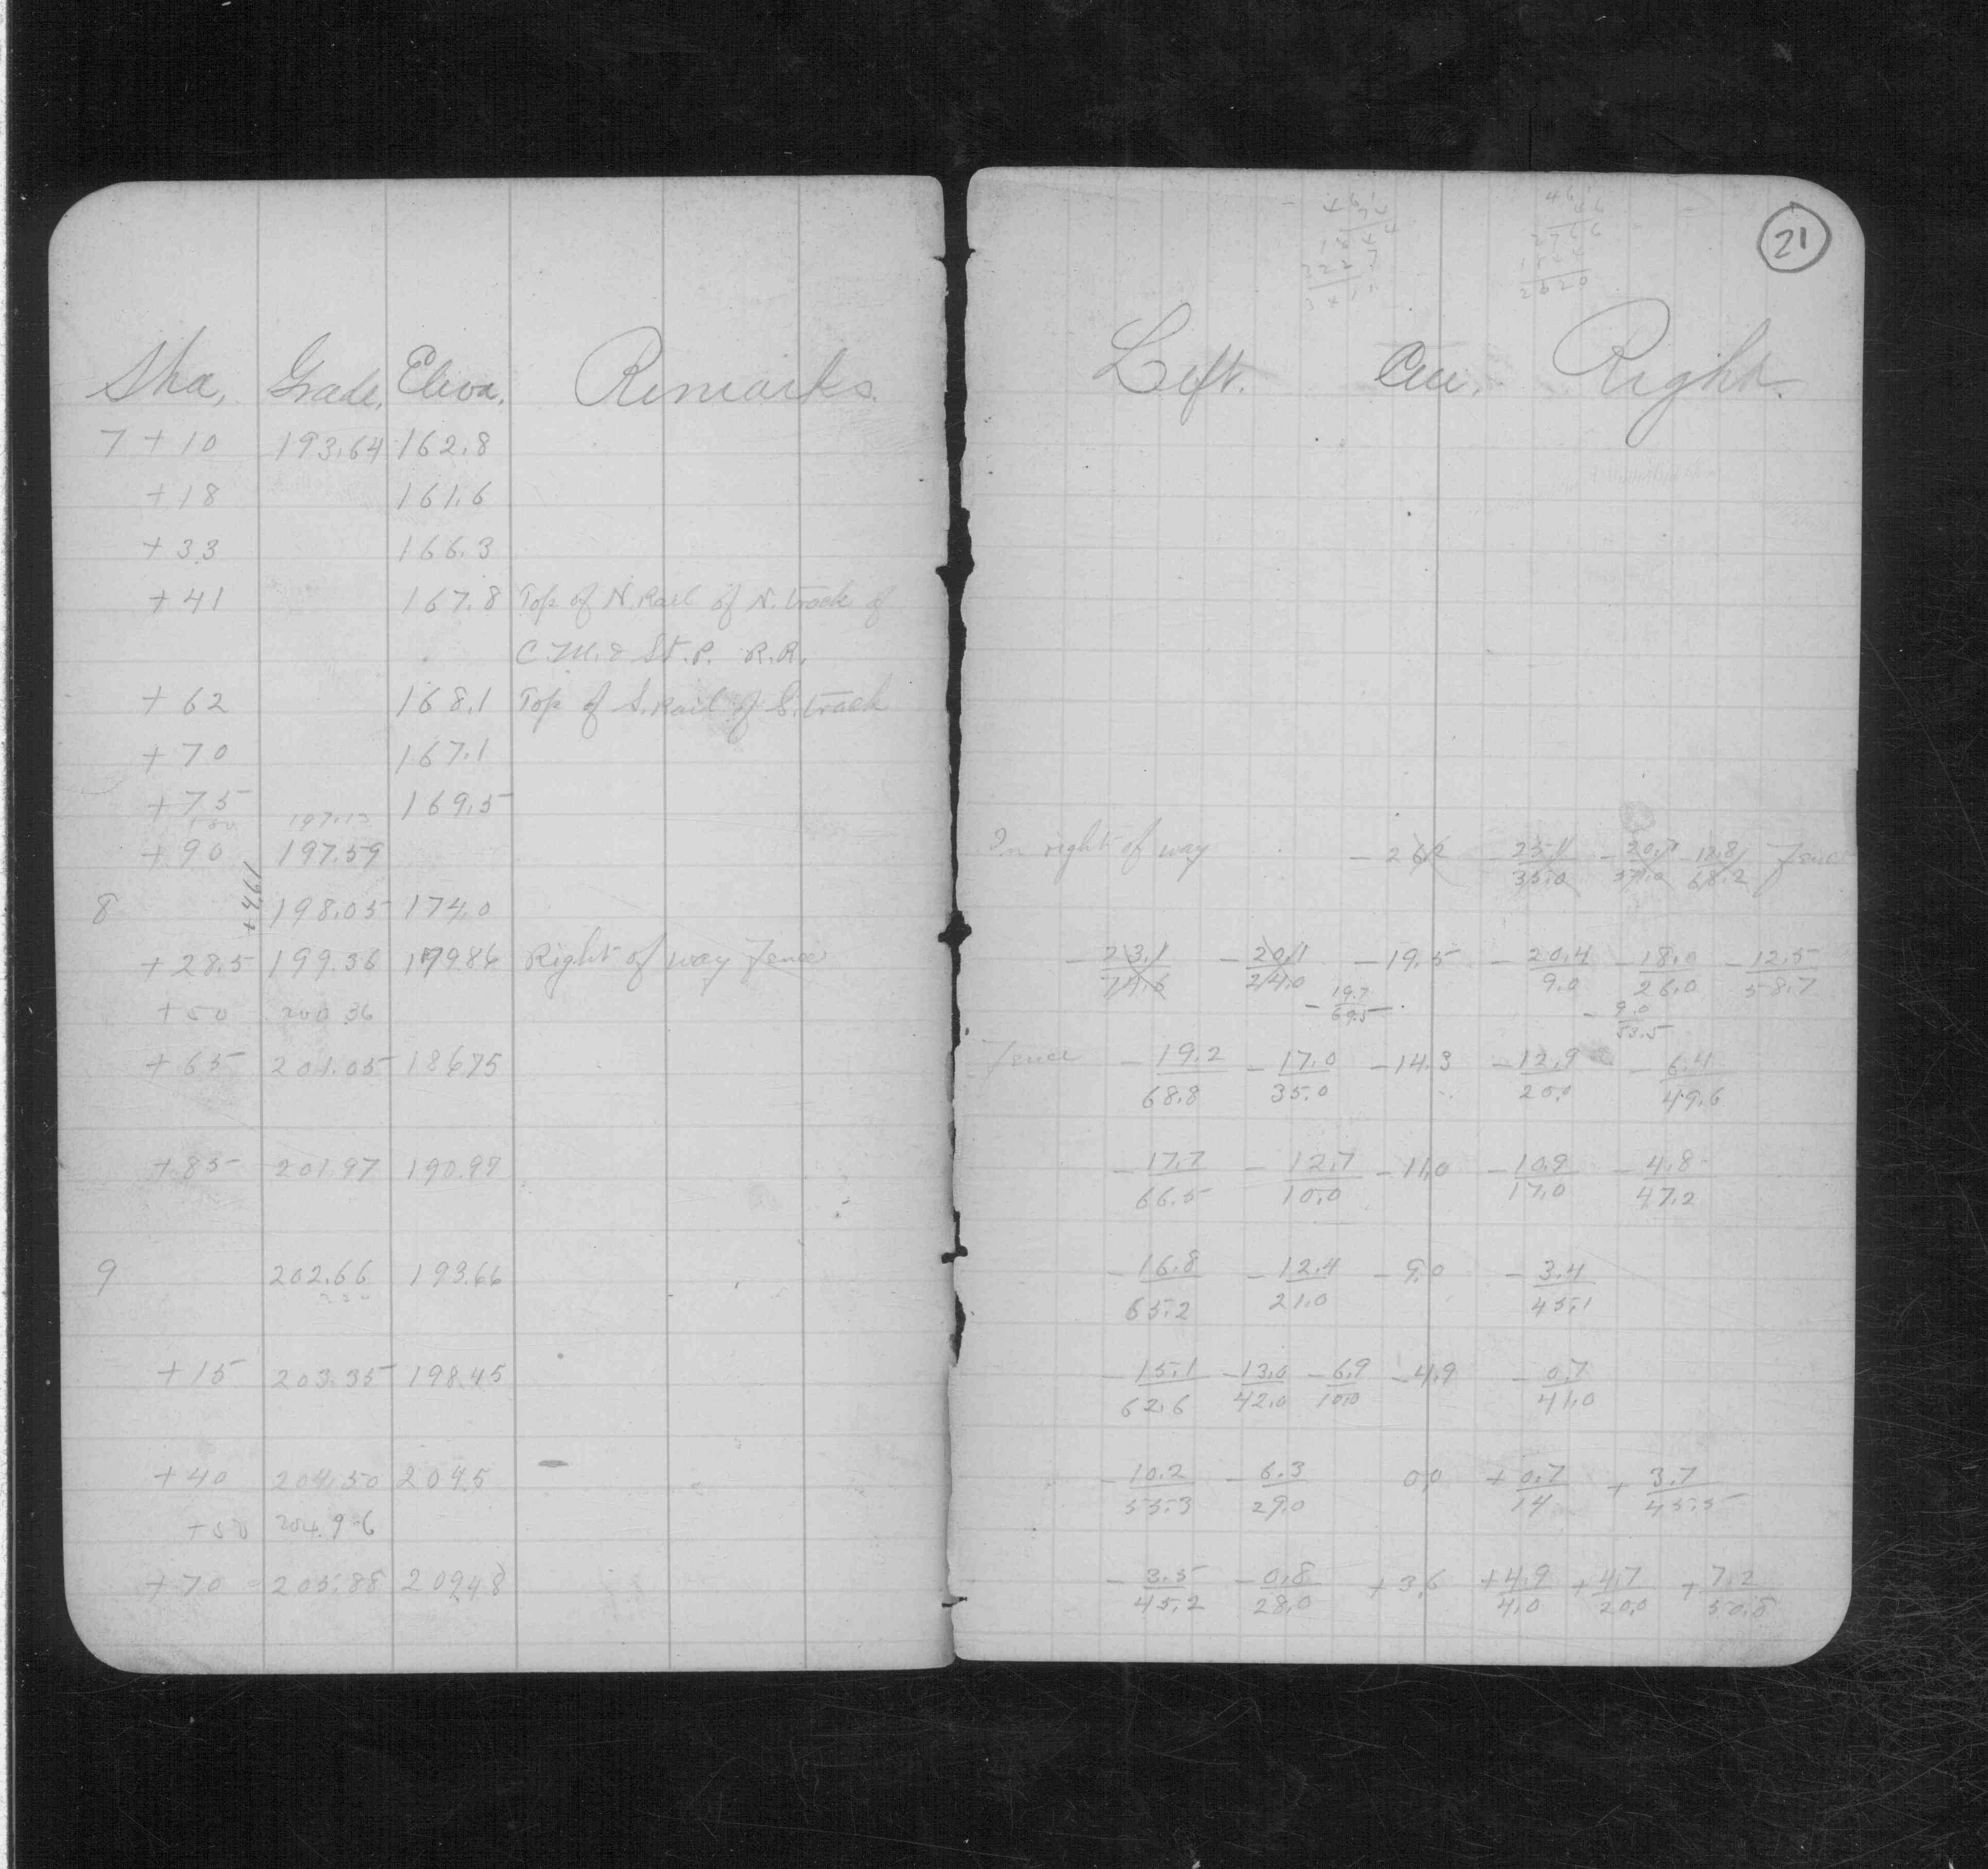 Sta, Grade, Eleva, Remarks.
7 + 10 193.64 162.8
+ 18 161.6
+ 33 166.3
+ 41 167.8 Top of N. Rail of N. track of
C.M. & St. P. R.R.
+ 62 168.1 Top of S. Rail of S. track
+ 70 167.1
+ 75 169.5
197.13
+ 90 197.59
+4.61
8 198.05 174.0
+ 28.5 199.36 179.86 Right of way Fence
+ 50 200.36
+ 65 201.05 186.75
+ 85 201.97 190.97
9 202.66 193.66
+ 15 203.35 198.45
+ 40 204.50 204.5
+ 50 204.96
+ 70 205.88 209.48
21
Left. Cen. Right.
In right of way - 26.2 - 25.1/35.0 - 20.7/57.0 - 12.8/68.2 Fence
- 23.1/74.6 - 20.1/24.0 - 19.5 - 20.4/9.0 - 18.0/26.0 - 12.5/58.7
- 19.7/69.5 - 9.0/53.5
Fence - 19.2/68.8 - 17.0/35.0 - 14.3 - 12.9/20.0 - 6.4/49.6
- 17.7/66.5 - 12.7/10.0 - 11.0 - 10.9/17.0 - 4.8/47.2
- 16.8/65.2 - 12.4/21.0 - 9.0 - 3.4/45.1
- 15.1/62.6 - 13.0/42.0 - 6.9/10.0 - 4.9 - 0.7/41.0
- 10.2/55.3 - 6.3/29.0 0.0 + 0.7/14 + 3.7/45.5
- 3.5/45.2 - 0.8/28.0 + 3.6 + 4.9/4.0 + 4.7/20.0 + 7.2/50.8